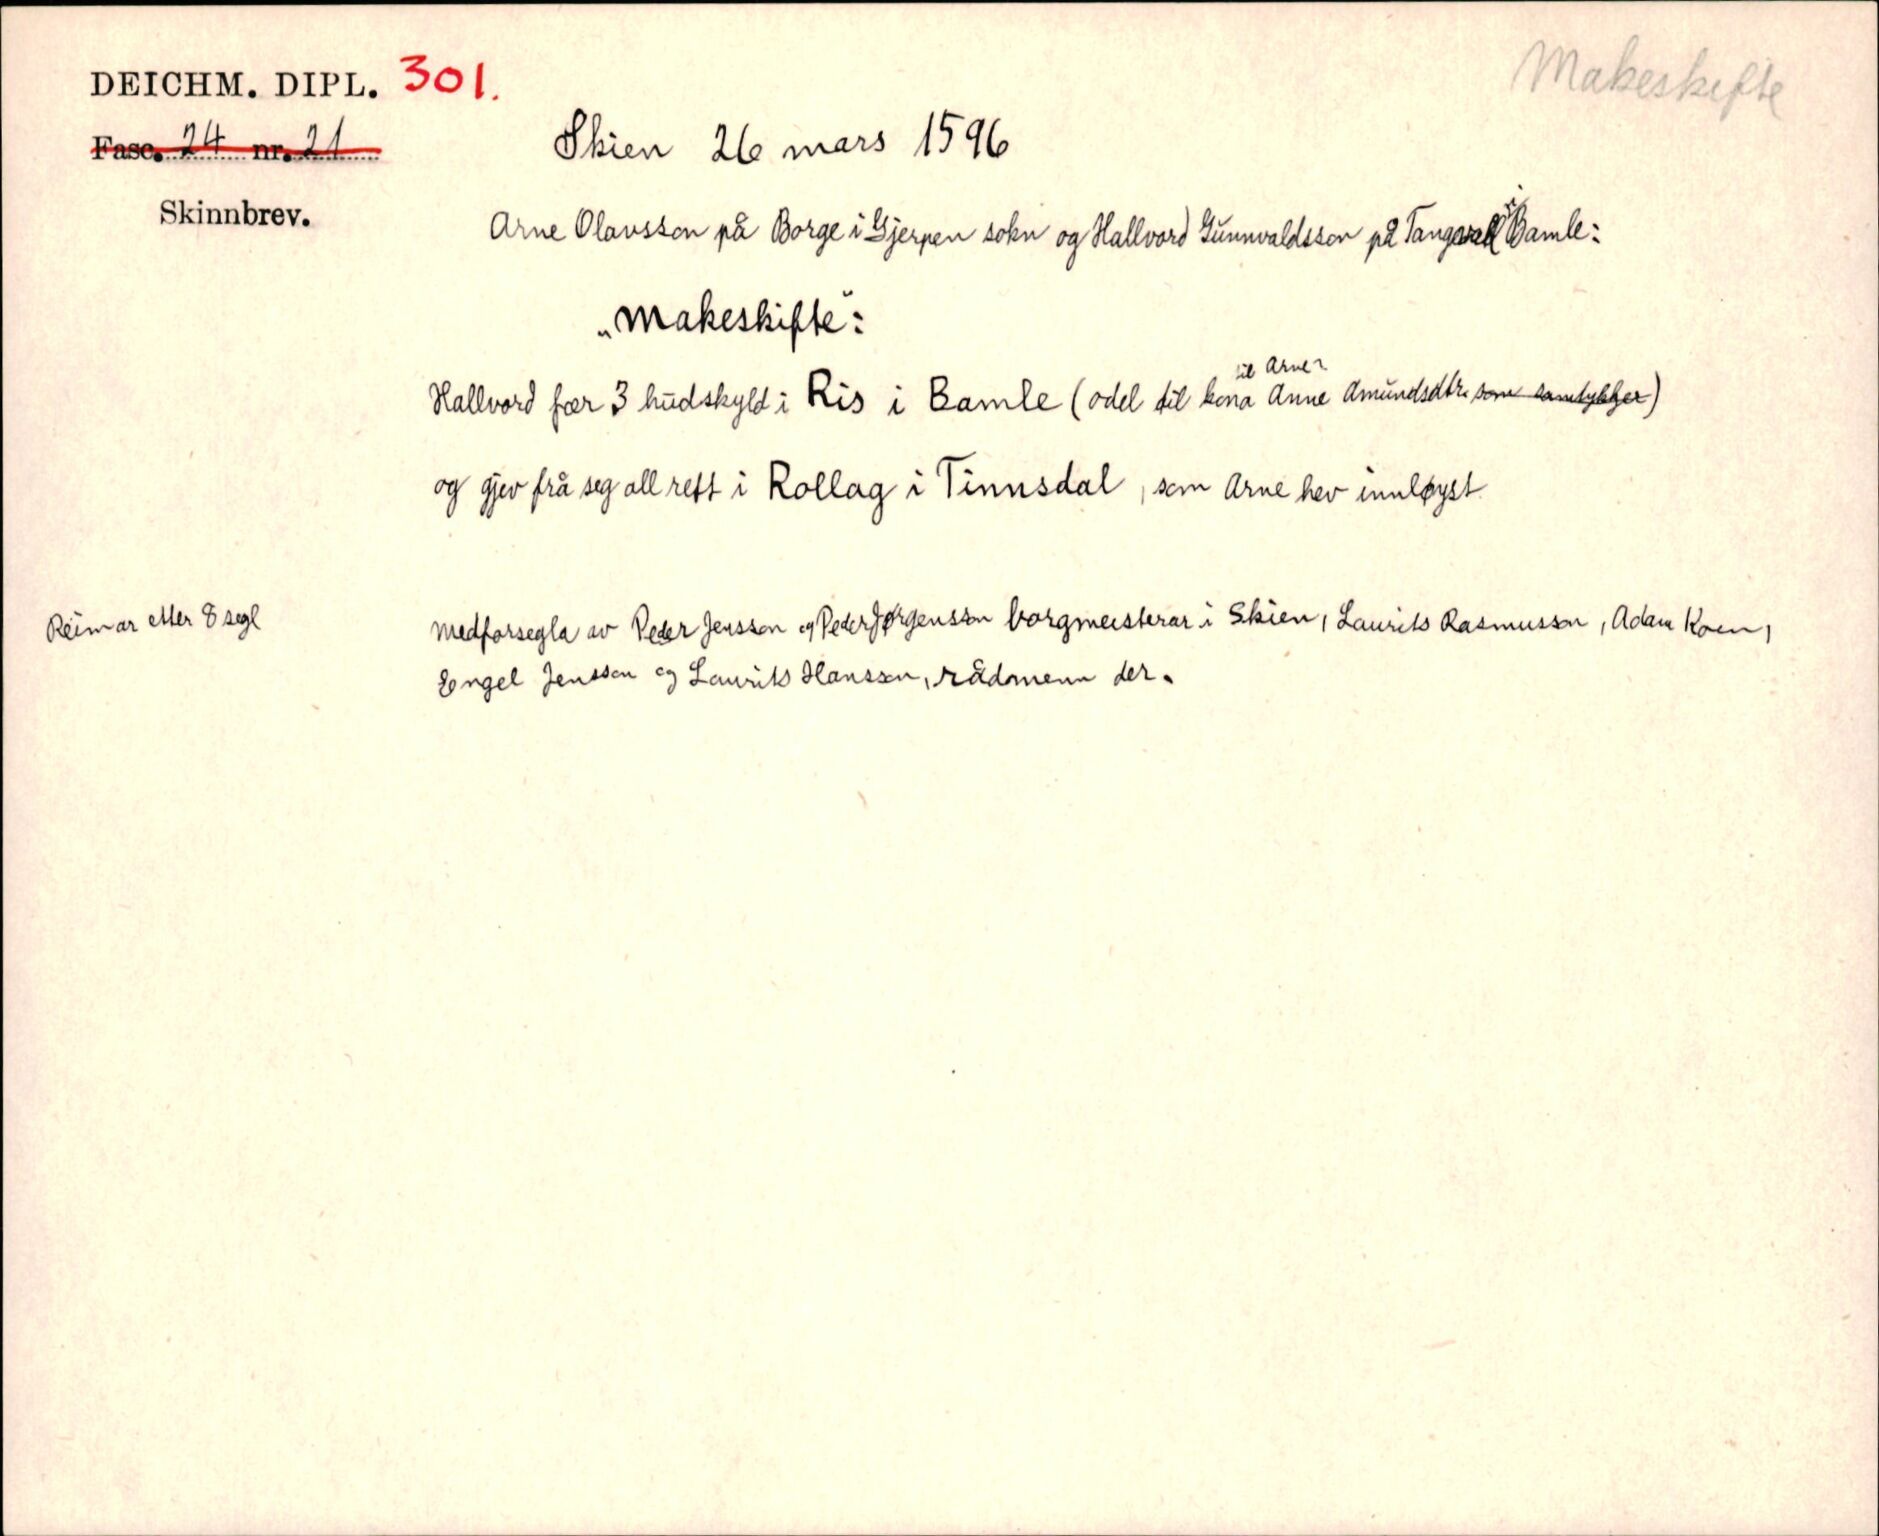 Makeskifte
DEICHM. DIPL. 301.
Fasc. 24 nr. 21
Skien 26 mars 1596
Skinnbrev.
Arne Olavsson på Borge i Gjerpen sokn og Hallvord Gunnvaldsson på Tangvall i Bamle:
„Makeskifte":
til Arne
Hallvord fær 3 hudskyld i Ris i Bamle (odel til kona Anne Amundsdtr. som samtykkjer)
og gjev frå seg all rett i Rollag i Tinnsdal, som Arne hev innløyst
Reimar etter 8 segl
Medforsegla av Peder Jensson og Peder Jørgensson borgmeisterar i Skien, Laurits Rasmusson, Adam Koen,
Engel Jensson og Laurits Hansson, rådmenn der.